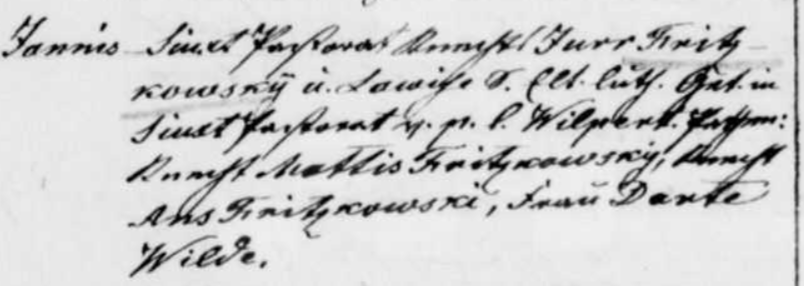 Jannis Siuxt Pastorat Knecht Jurr Fritz-
kowsky u. Lawise S. Elt. luth. Get. in
Siuxt Pastorat v. p. l. Wilpert. Pathen:
Knecht Mattis Fritzkowsky, Knecht
Ans Fritzkowski, Frau Darte
Wilde.